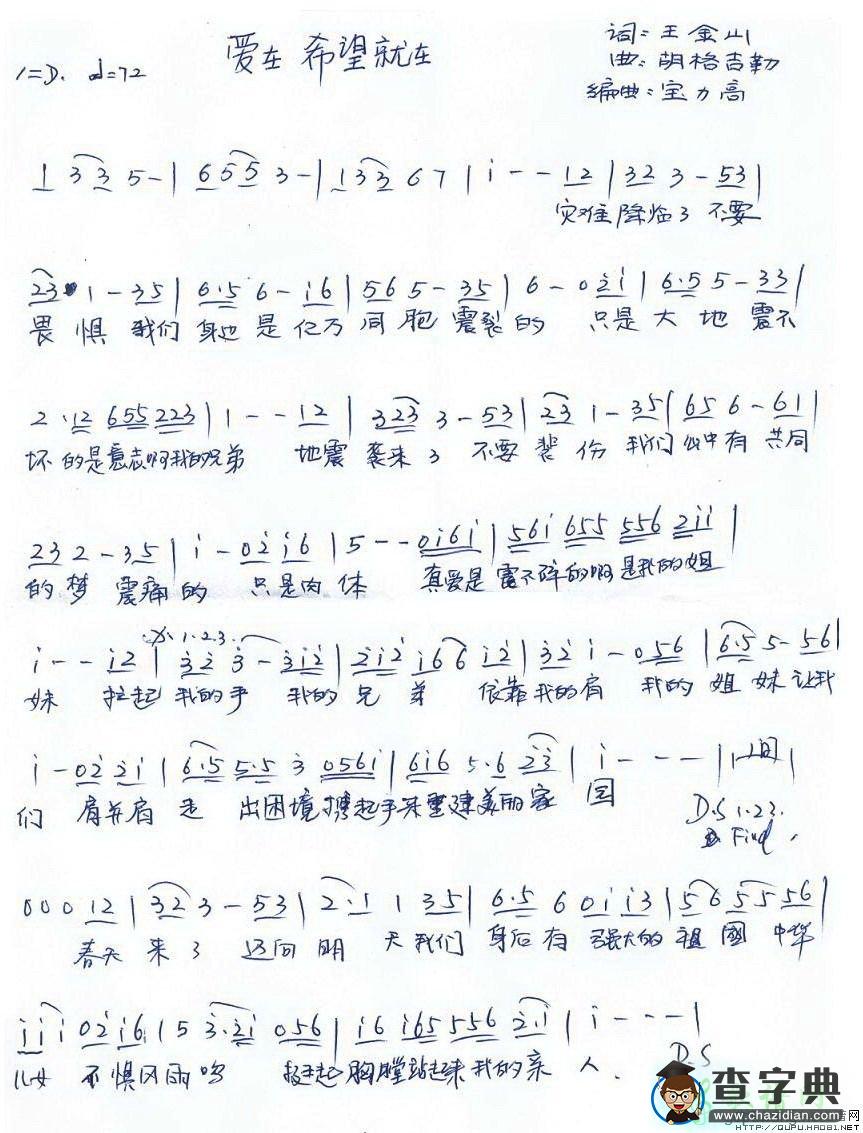 爱在 希望就在
词：王金山
曲：胡格吉勒
编曲：宝力高
1=D. d=72
1 3 3 5 - | 6 5 5 3 - | 1 3 3 6 7 | i - - 1 2 | 3 2 3 - 5 3 |
灾难降临了 不要
2 3 1 - 3 5 | 6·5 6 - i 6 | 5 6 5 - 3 5 | 6 - 0 2 i | 6·5 5 - 3 3 |
畏惧 我们 身边是亿万同胞 震裂的 只是大地 震不
2·1 2 6 5 5 2 2 3 | 1 - - 1 2 | 3 2 3 3 - 5 3 | 2 3 1 - 3 5 | 6 5 6 - 6 1 |
坏的是意志啊我的兄弟 地震袭来了 不要 我们心中有共同
2 3 2 - 3 5 | i - 0 2 i 6 | 5 - - 0 i 6 i | 5 6 i 6 5 5 5 5 6 2 i i |
的梦 震痛的 只是肉体 真爱是震不碎的啊是我的姐
1.2.3.
i - - i 2 | 3 2 3 - 3 i 2 | 2 i 2 i 6 6 i 2 | 3 2 i - 0 5 6 | 6·5 5 - 5 6 |
妹 拉起我的手 我的兄弟 依靠我的肩 我的姐妹让我
i - 0 2 2 i | 6·5 5·5 3 0 5 6 i | 6 i 6 5·6 2 3 | i - - - | 间 |
们 肩并肩走 出困境 起手来重建美丽家园
D.S 1.2 3.
Find
0 0 0 1 2 | 3 2 3 - 5 3 | 2·1 1 3 5 | 6·5 6 0 i i 3 | 5 6 5 5 5 6 |
春天来了 迈向明天我们身后有强大的祖國 中华
i i i 0 2 i 6 | 5 3·2 i 0 5 6 | i 6 i 6 5 5 5 6 2·i | i - - - |
儿女 不惧风雨 挺起胸膛站起来我的亲人.
D.S
查字典
www.chazidian.com
HTTP://QUPU.HAO81.NET